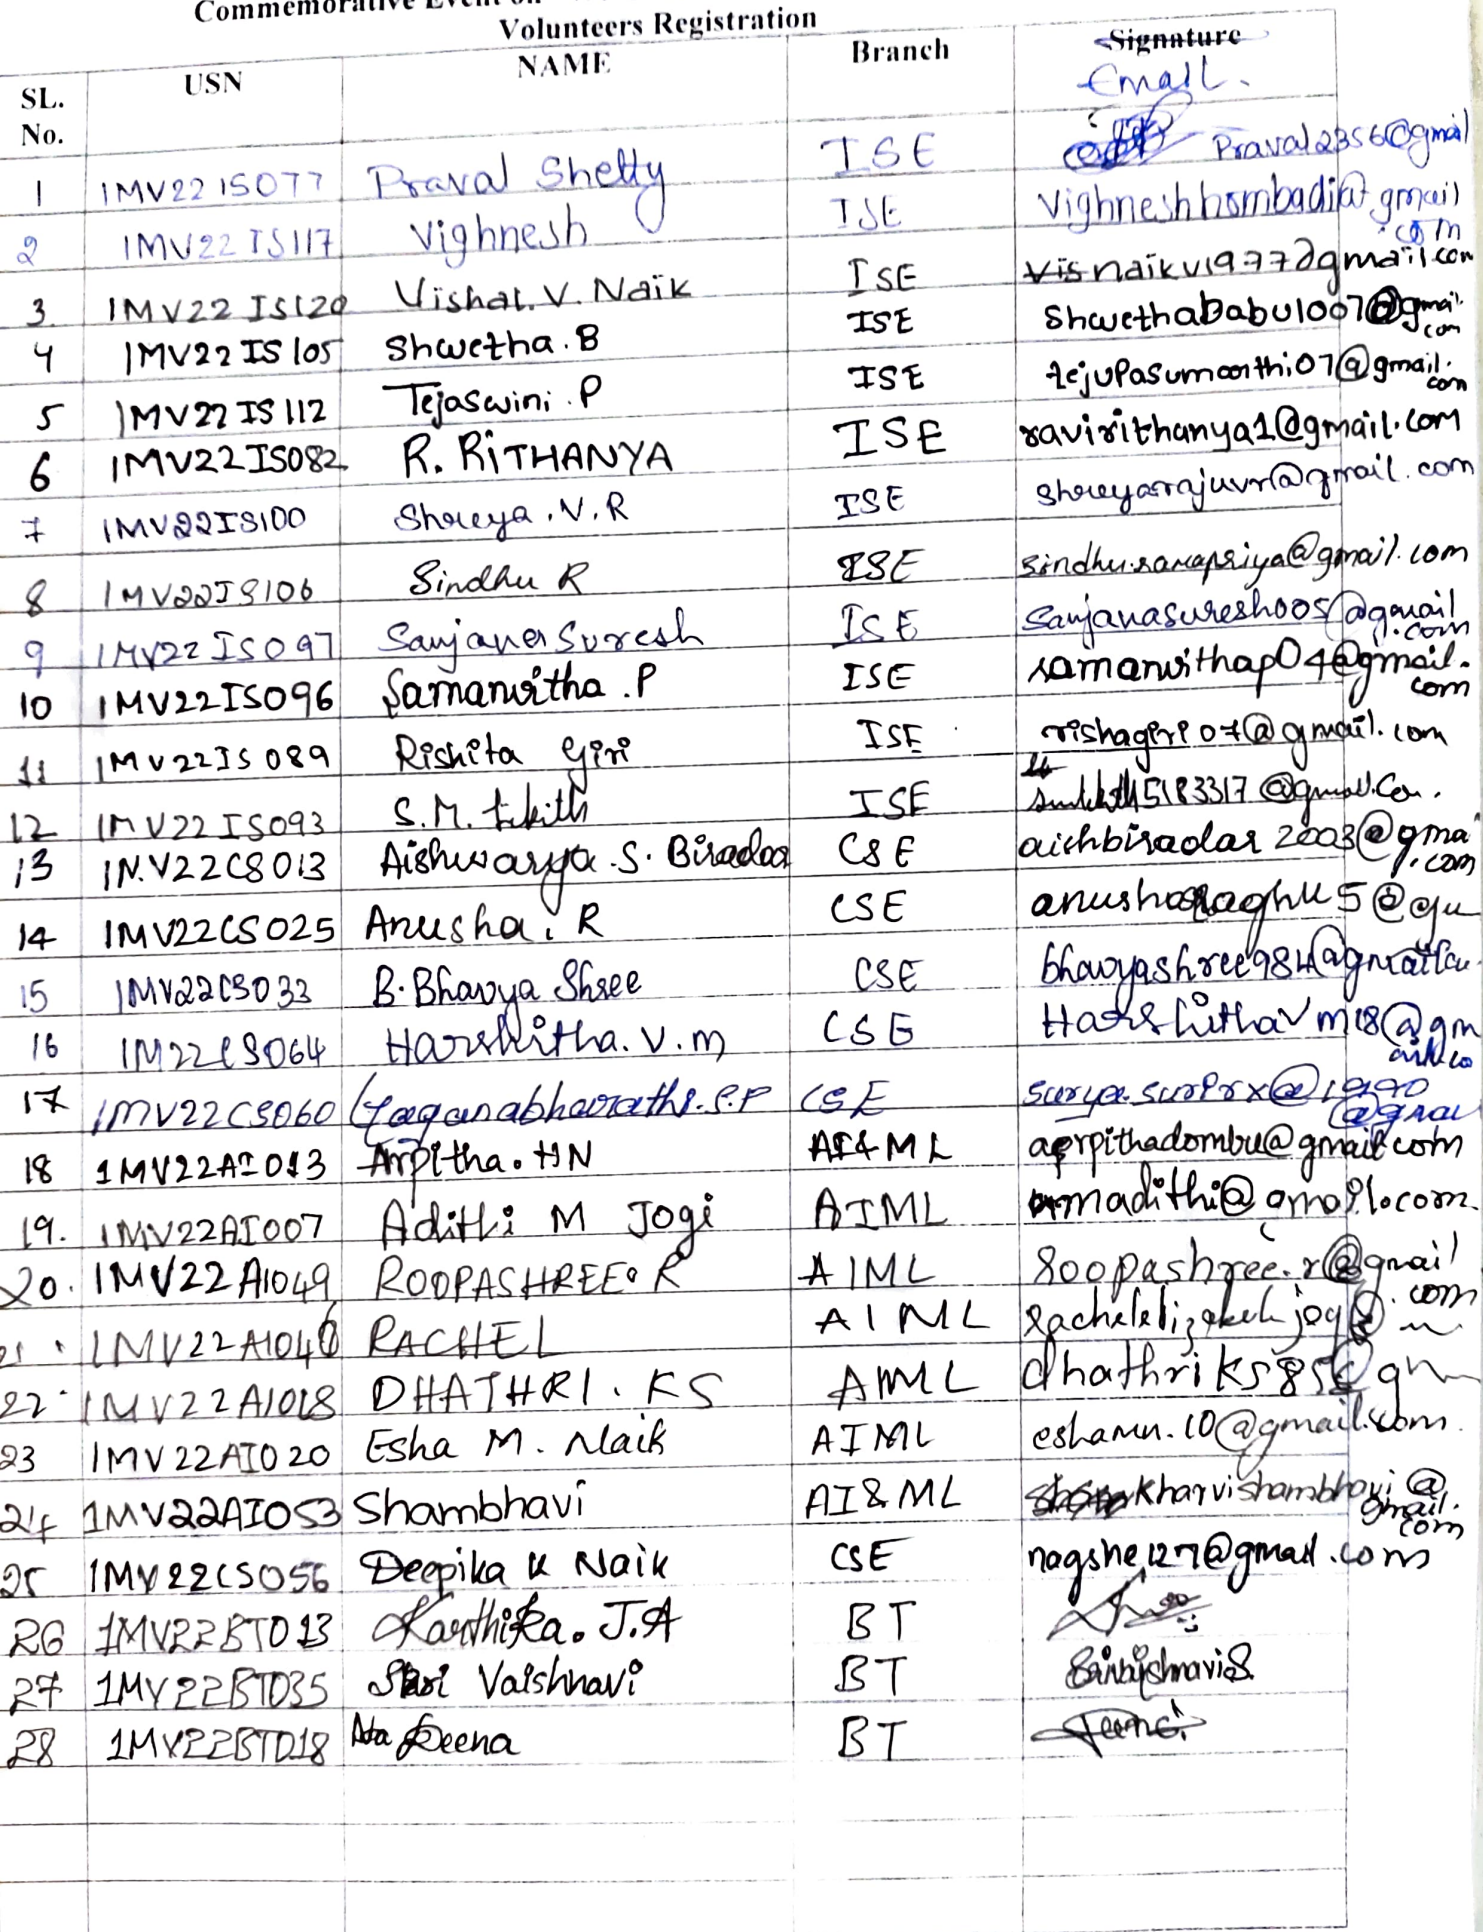 Commemorative Event on
Volunteers Registration
SL. No. USN NAME Branch Signature Email.
1 1MV22IS077 Praval Shetty ISE Praval2356@gmail
2 1MV22IS117 Vighnesh ISE Vighneshhombadi@gmail.com
3. 1MV22IS120 Vishal.V.Naik ISE visnaikv1977@gmail.com
4 1MV22IS105 Shwetha.B ISE Shwethababu1007@gmail.com
5 1MV22IS112 Tejaswini.P ISE tejupasumarthi07@gmail.com
6 1MV22IS082 R.RITHANYA ISE ravirithanya1@gmail.com
7 1MV22IS100 Shreya.V.R ISE shreyarajuvr@gmail.com
8 1MV22IS106 Sindhu R ISE sindhu.ramapriya@gmail.com
9 1MV22IS097 Sanjana Suresh ISE Sanjanasuresh005@gmail.com
10 1MV22IS096 Samanvitha.P ISE samanvithap04@gmail.com
11 1MV22IS089 Rishita Giri ISE rishagiri07@gmail.com
12 1MV22IS093 S.M. Likith ISE
13 1MV22CS013 Aishwarya.S.Biradar CSE aishbiradar2003@gmai.com
14 1MV22CS025 Anusha.R CSE
15 1MV22CS033 B.Bhavya Shree CSE
16 1M22CS064 Harshitha.V.m CSE Harshithavm18@gmail.co
17 1MV22CS060 Gaganabharathi.S.P CSE
18 1MV22AI013 Arpitha.HN AI&ML arpithadombu@gmail.com
19. 1MV22AI007 Adithi M Jogi AIML madithi@gmail.com.
20. 1MV22AI049 ROOPASHREE.R AIML roopashree.r@gmail.com
21. 1MV22AI046 RACHEL AIML
22. 1MV22AI018 DHATHRI.KS AIML
23 1MV22AI020 Esha M. Naik AIML eshamn.10@gmail.com.
24 1MV22AI053 Shambhavi AI&ML kharvishambhavi@gmail.com
25 1MV22CS056 Deepika K Naik CSE nagshe127@gmail.com
26 1MV22BT013 Karthika.J.A BT
27 1MV22BT035 Sri Vaishnavi BT
28 1MV22BT018 Leena BT